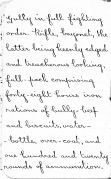 "Gully in full fighting
order. Rifle, bayonet, the
latter being keenly edged
and treacherous looking,
full pack comprising
forty-eight hours iron
rations of bully-beef
and biscuits, water-
-bottle, over-coat, and
one hundred and twenty
rounds of ammunition,